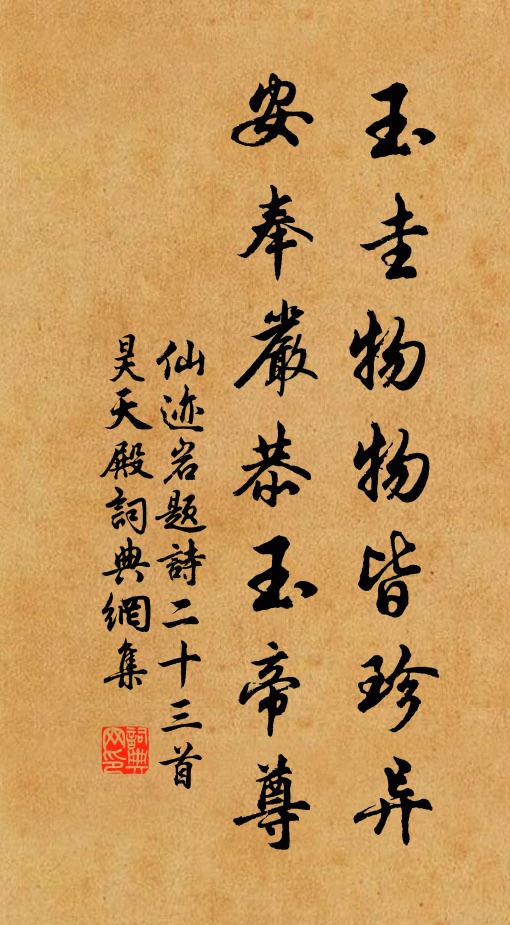 玉圭物物皆珍异
安奉嚴恭玉帝尊
仙迹岩题詩二十三首
昊天殿詞典網集
詞典网印